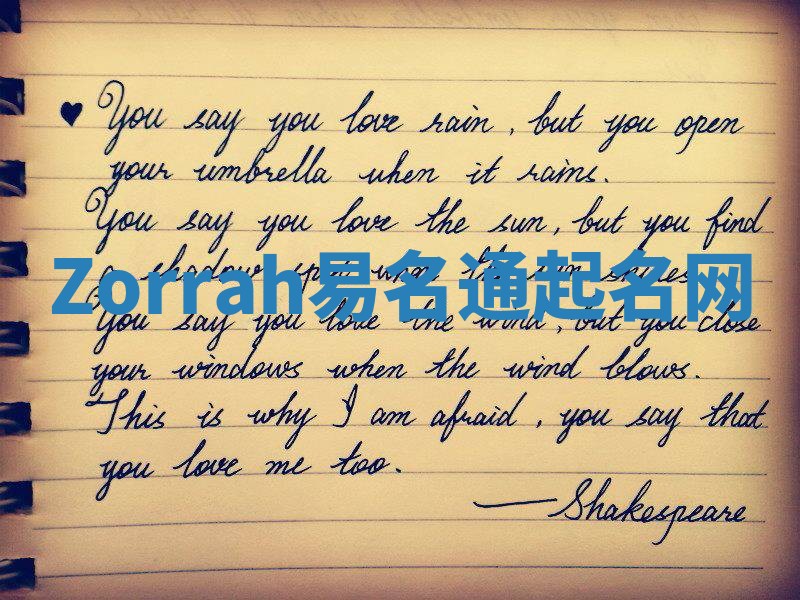 ♥ You say you love rain, but you open
your umbrella when it rains.
You say you love the sun, but you find
a shadow spot when the sun shines.
Zorrah易名通起名网
You say you love the wind, but you close
your windows when the wind blows.
This is why I am afraid, you say that
you love me too.
— Shakespeare